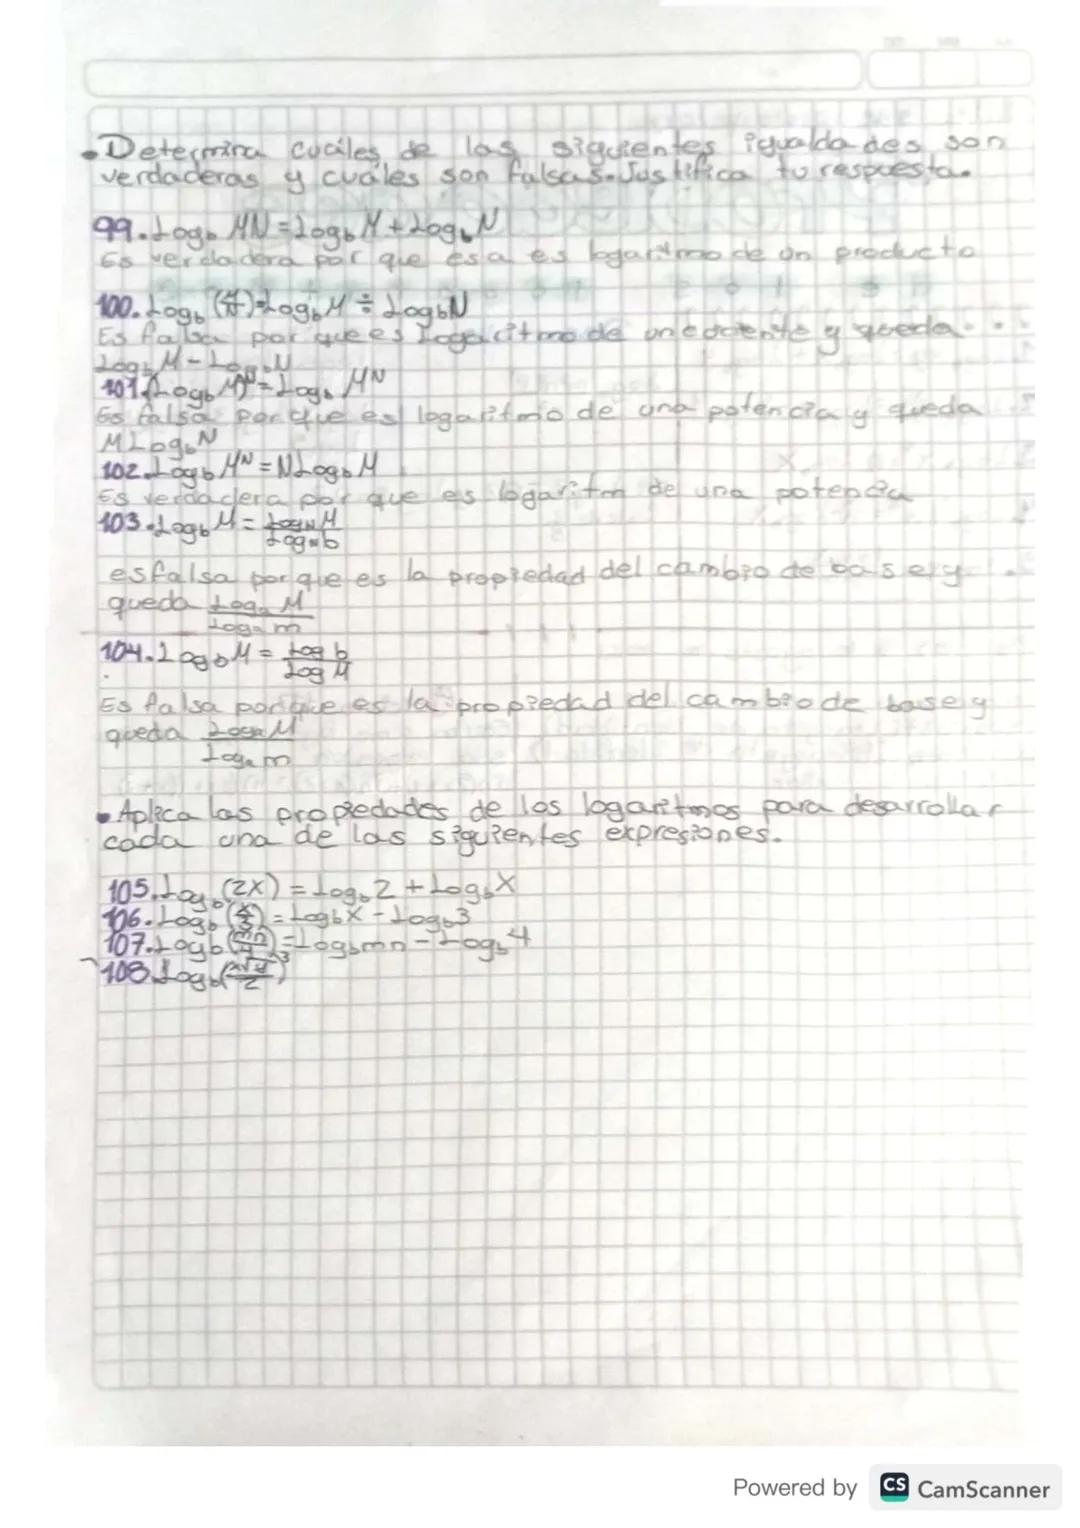 • Determina cuáles de las siguientes igualdades son
verdaderas y cuáles son falsas. Justifica tu respuesta.
99. Log_b MN = Log_b M + Log_b N
Es verdadera por que esa es logaritmo de un producto
100. Log_b (M/N) = Log_b M ÷ Log_b N
Es falsa por que es Logaritmo de un cociente y queda
Log_b M - Log_b N
101. (Log_b M)^N = Log_b MN
Es falsa porque es logaritmo de una potencia y queda
M Log_b N
102. Log_b M^N = N Log_b M
Es verdadera por que es logaritm de una potencia
103. Log_b M = Log_N M / Log_N b
es falsa porque es la propiedad del cambio de base y
queda Log_a M / Log_a m
104. Log_b M = Log b / Log M
Es falsa porque es la propiedad del cambio de base y
queda Log_a M / Log_a m
• Aplica las propiedades de los logaritmos para desarrollar
cada una de las siguientes expresiones.
105. Log_b (2X) = Log_b 2 + Log_b X
106. Log_b (x/3) = Log_b X - Log_b 3
107. Log_b (mn/4) = Log_b mn - Log_b 4
108. Log_b
Powered by CS CamScanner